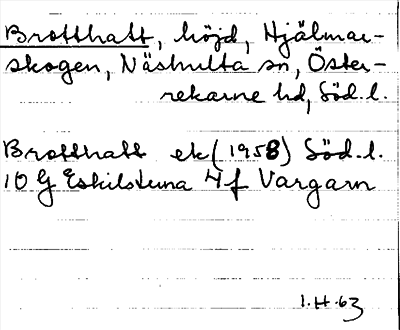 Brotthatt, höjd, Hjälmar-
skogen, Näshulta sn, Öster-
rekarne hd, Söd. l.
Brotthatt ek (1958) Söd. l.
10 G Eskilstuna 4 f Vargarn
1.H.63